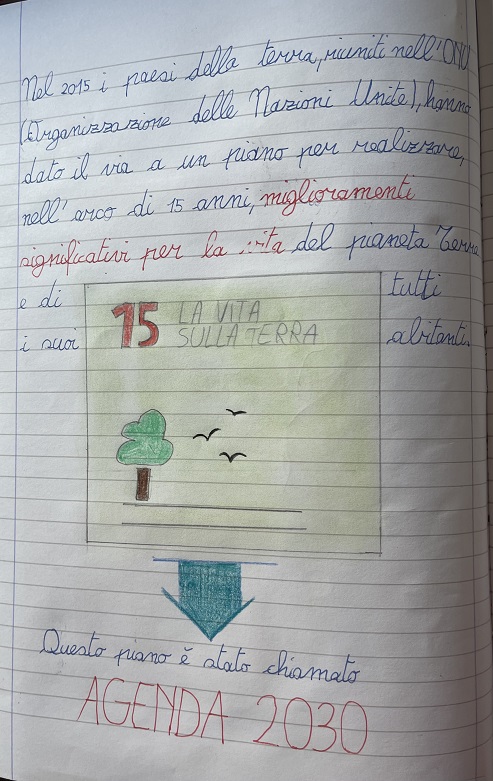 Nel 2015 i paesi della terra, riuniti nell'ONU
(Organizzazione delle Nazioni Unite), hanno
dato il via a un piano per realizzare,
nell'arco di 15 anni, miglioramenti
significativi per la vita del pianeta Terra
e di tutti
i suoi abitanti.
15 LA VITA
SULLA TERRA
Questo piano è stato chiamato
AGENDA 2030